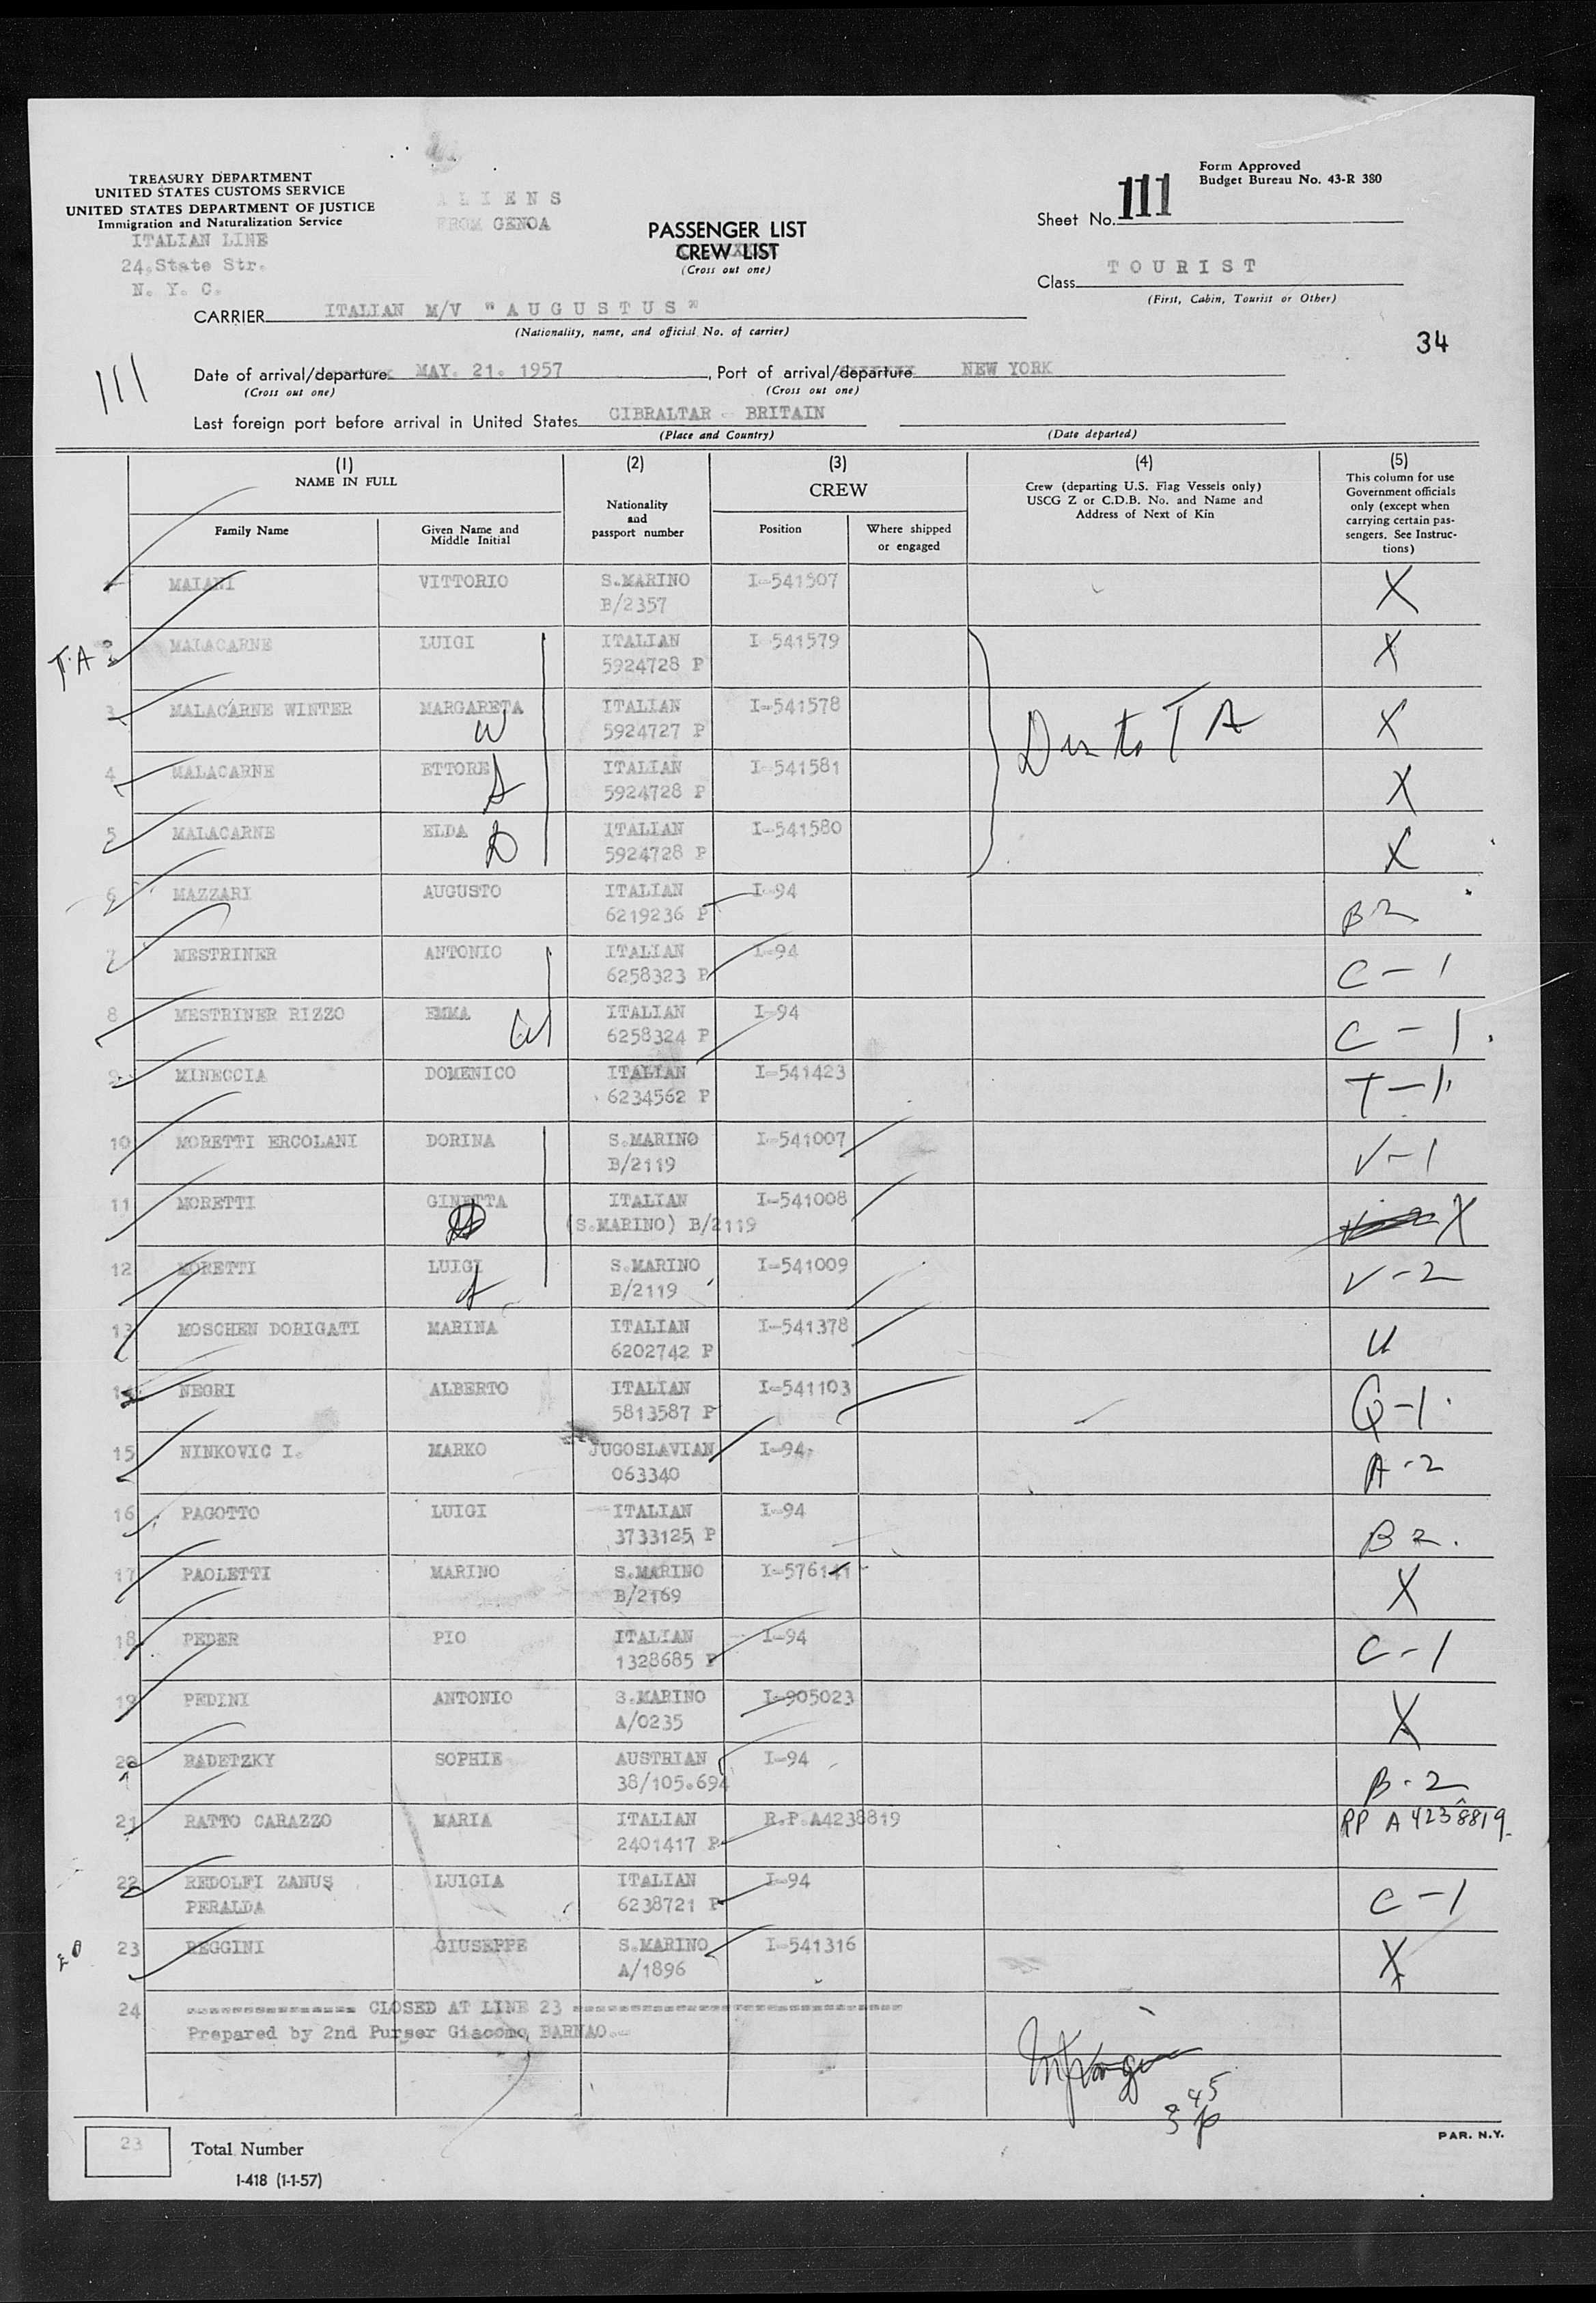 TREASURY DEPARTMENT
UNITED STATES CUSTOMS SERVICE
UNITED STATES DEPARTMENT OF JUSTICE
Immigration and Naturalization Service
ITALIAN LINE
24,State Str.
N. Y. C.
ALIENS
FROM GENOA
PASSENGER LIST
CREW LIST
(Cross out one)
Form Approved
Budget Bureau No. 43-R 380
Sheet No. 111
Class TOURIST
(First, Cabin, Tourist or Other)
CARRIER ITALIAN M/V "AUGUSTUS"
(Nationality, name, and official No. of carrier)
34
111
Date of arrival/departure MAY. 21. 1957, Port of arrival/departure NEW YORK
(Cross out one) (Cross out one)
Last foreign port before arrival in United States GIBRALTAR - BRITAIN
(Place and Country) (Date departed)
(1) NAME IN FULL
Family Name
Given Name and Middle Initial
(2)
Nationality and passport number
(3)
CREW
Position
Where shipped or engaged
(4)
Crew (departing U.S. Flag Vessels only)
USCG Z or C.D.B. No. and Name and
Address of Next of Kin
(5)
This column for use
Government officials
only (except when
carrying certain pas-
sengers. See Instruc-
tions)
MAIANI VITTORIO S.MARINO I-541507 X
B/2357
T.A 2 MALACARNE LUIGI ITALIAN I-541579 X
5924728 P
3 MALACARNE WINTER MARGARETA ITALIAN I-541578 X
W 5924727 P
T A
4 MALACARNE ETTORE ITALIAN I-541581 X
5924728 P
5 MALACARNE ELDA ITALIAN I-541580 X
D 5924728 P
6 MAZZARI AUGUSTO ITALIAN I-94 B-2
6219236 P
7 MESTRINER ANTONIO ITALIAN I-94 C-1
6258323 P
8 MESTRINER RIZZO EMMA ITALIAN I-94 C-1
W 6258324 P
9 MINECCIA DOMENICO ITALIAN I-541423 T-1
6234562 P
10 MORETTI ERCOLANI DORINA S.MARINO I-541007 V-1
B/2119
11 MORETTI GINETTA ITALIAN I-541008 X
(S.MARINO) B/2119
12 MORETTI LUIGI S.MARINO I-541009 V-2
B/2119
13 MOSCHEN DORIGATI MARINA ITALIAN I-541378 U
6202742 P
14 NEGRI ALBERTO ITALIAN I-541103 Q-1
5813587 P
15 NINKOVIC I. MARKO JUGOSLAVIAN I-94 A-2
063340
16 PAGOTTO LUIGI ITALIAN I-94 B 2.
3733125 P
17 PAOLETTI MARINO S.MARINO I-576141 X
B/2169
18 PEDER PIO ITALIAN I-94 C-1
1328685 P
19 PEDINI ANTONIO S.MARINO I-905023 X
A/0235
20 RADETZKY SOPHIE AUSTRIAN I-94 B-2
38/105.694
21 RATTO CARAZZO MARIA ITALIAN R.P.A4238819 RP A4238819
2401417 P
22 REDOLFI ZANUS LUIGIA ITALIAN I-94 C-1
PERALDA 6238721 P
23 REGGINI GIUSEPPE S.MARINO I-541316 X
A/1896
24 ---------------- CLOSED AT LINE 23 --------------------------------
Prepared by 2nd Purser Giacomo BARNAO.-
3 45 p
23 Total Number
I-418 (1-1-57)
PAR. N.Y.